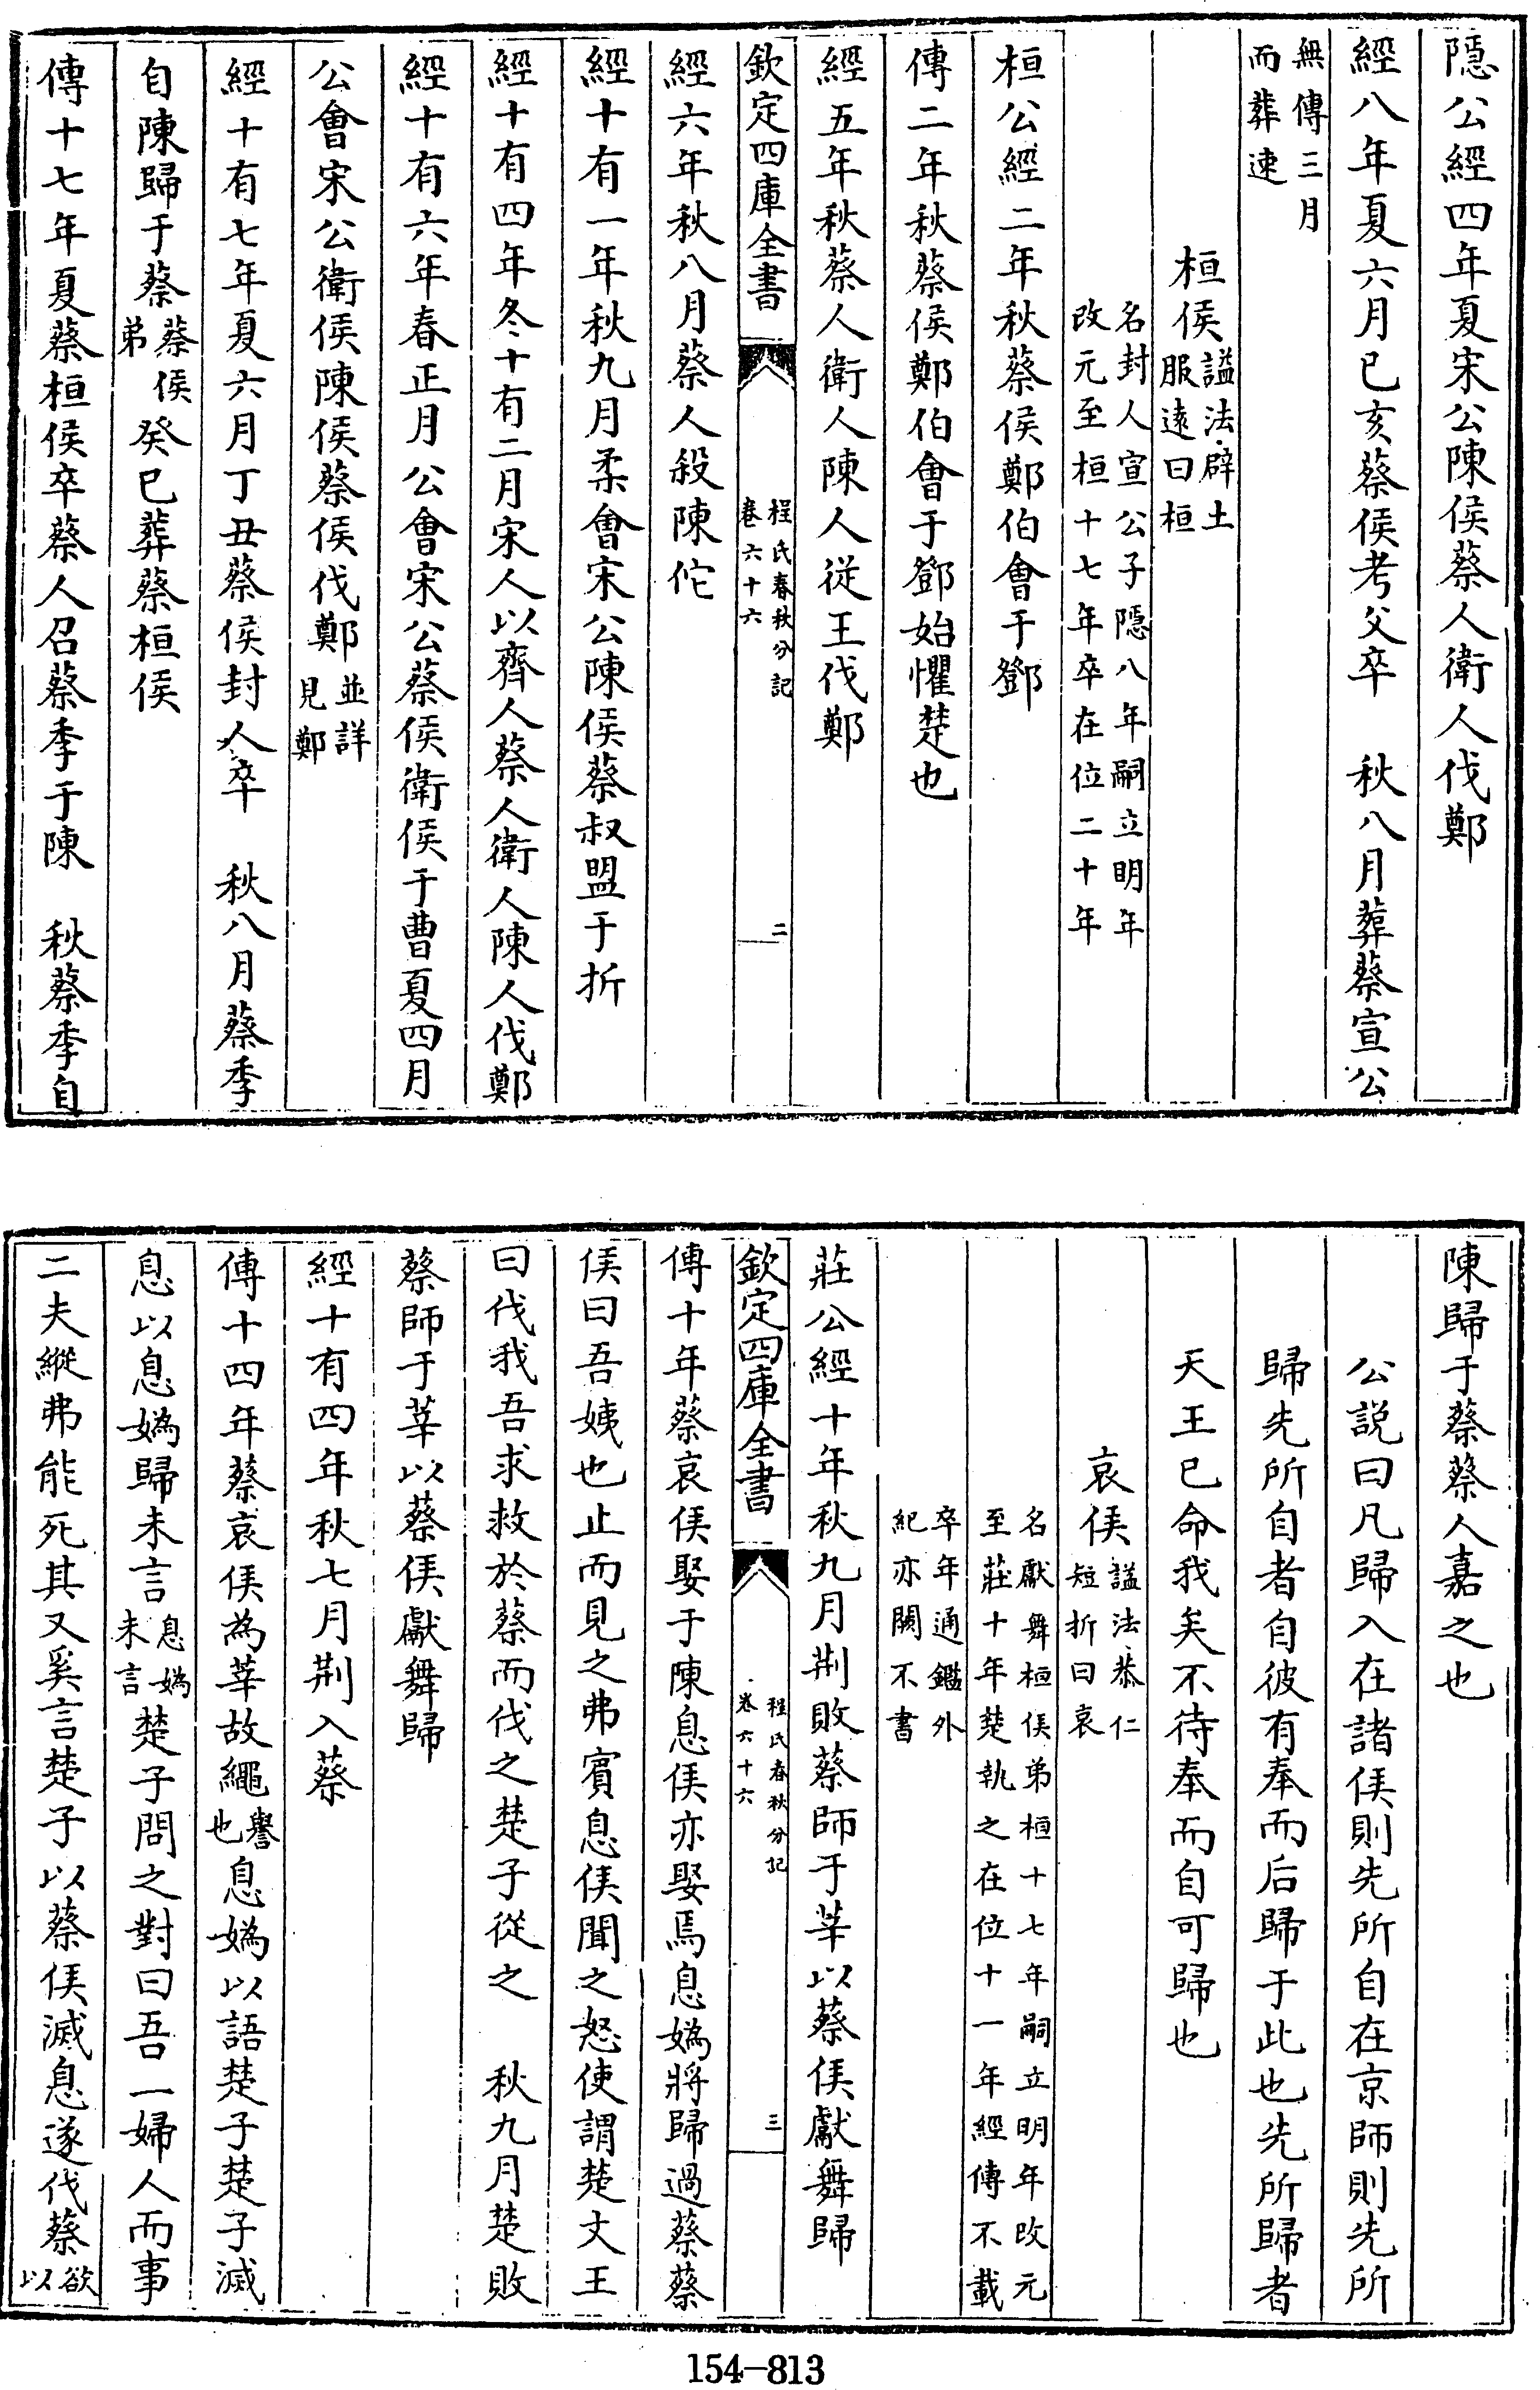 隱公經四年夏宋公陳侯蔡人衛人伐鄭
經八年夏六月已亥蔡侯考父卒　秋八月葬蔡宣公
無傳三月
而葬速
桓侯謚法辟土
服遠曰桓
名封人宣公子隱八年嗣立明年
改元至桓十七年卒在位二十年
桓公經二年秋蔡侯鄭伯會于鄧
傳二年秋蔡侯鄭伯會于鄧始懼楚也
經五年秋蔡人衛人陳人從王伐鄭
欽定四庫全書
程氏春秋分記
卷六十六
二
經六年秋八月蔡人殺陳佗
經十有一年秋九月柔會宋公陳侯蔡叔盟于折
經十有四年冬十有二月宋人以齊人蔡人衛人陳人伐鄭
經十有六年春正月公會宋公蔡侯衛侯于曹夏四月
公會宋公衛侯陳侯蔡侯伐鄭並詳
見鄭
經十有七年夏六月丁丑蔡侯封人卒　秋八月蔡季
自陳歸于蔡蔡侯
弟癸巳葬蔡桓侯
傳十七年夏蔡桓侯卒蔡人召蔡季于陳　秋蔡季自
陳歸于蔡蔡人嘉之也
公説曰凡歸入在諸侯則先所自在京師則先所
歸先所自者自彼有奉而后歸于此也先所歸者
天王已命我矣不待奉而自可歸也
哀侯謚法恭仁
短折曰哀
名獻舞桓侯弟桓十七年嗣立明年改元
至莊十年楚執之在位十一年經傳不載
卒年通鑑外
紀亦闕不書
莊公經十年秋九月荆敗蔡師于莘以蔡侯獻舞歸
欽定四庫全書
程氏春秋分記
卷六十六
三
傳十年蔡哀侯娶于陳息侯亦娶焉息嬀將歸過蔡蔡
侯曰吾姨也止而見之弗賓息侯聞之怒使謂楚文王
曰伐我吾求救於蔡而伐之楚子從之　秋九月楚敗
蔡師于莘以蔡侯獻舞歸
經十有四年秋七月荆入蔡
傳十四年蔡哀侯為莘故繩譽
也息嬀以語楚子楚子滅
息以息嬀歸未言息嬀
未言楚子問之對曰吾一婦人而事
二夫縱弗能死其又奚言楚子以蔡侯滅息遂伐蔡欲
以
154-813